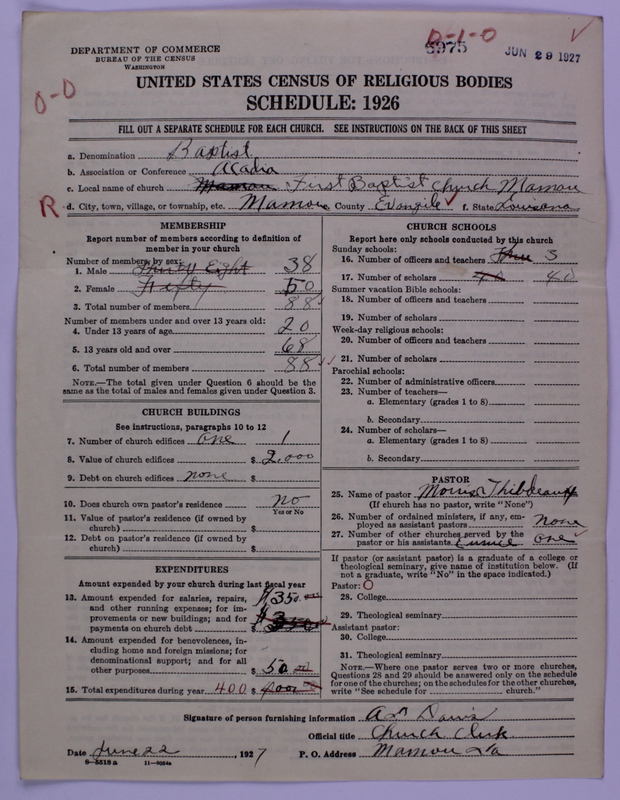 B-1-0
8975
JUN 29 1927
DEPARTMENT OF COMMERCE
BUREAU OF THE CENSUS
WASHINGTON
0-0
UNITED STATES CENSUS OF RELIGIOUS BODIES
SCHEDULE: 1926
FILL OUT A SEPARATE SCHEDULE FOR EACH CHURCH. SEE INSTRUCTIONS ON THE BACK OF THIS SHEET
a. Denomination Baptist
b. Association or Conference Acadia
c. Local name of church Mamou First Baptist Church Mamou
R d. City, town, village, or township, etc. Mamou County Evangile f. State Louisana
MEMBERSHIP
Report number of members according to definition of
member in your church
Number of members by sex:
1. Male Thirty Eight 38
2. Female Fifty 50
3. Total number of members 88
Number of members under and over 13 years old:
4. Under 13 years of age 20
5. 13 years old and over 68
6. Total number of members 88
NOTE.—The total given under Question 6 should be the
same as the total of males and females given under Question 3.
CHURCH BUILDINGS
See instructions, paragraphs 10 to 12
7. Number of church edifices one 1
8. Value of church edifices $ 2,000
9. Debt on church edifices none $
10. Does church own pastor's residence? no
Yes or No
11. Value of pastor's residence (if owned by
church) $
12. Debt on pastor's residence (if owned by
church) $
EXPENDITURES
Amount expended by your church during last fiscal year
13. Amount expended for salaries, repairs,
and other running expenses; for im-
provements or new buildings; and for
payments on church debt $ 350
14. Amount expended for benevolences, in-
cluding home and foreign missions; for
denominational support; and for all
other purposes $ 50
15. Total expenditures during year 400 $
CHURCH SCHOOLS
Report here only schools conducted by this church
Sunday schools:
16. Number of officers and teachers Three 3
17. Number of scholars 40 40
Summer vacation Bible schools:
18. Number of officers and teachers
19. Number of scholars
Week-day religious schools:
20. Number of officers and teachers
21. Number of scholars
Parochial schools:
22. Number of administrative officers
23. Number of teachers—
a. Elementary (grades 1 to 8)
b. Secondary
24. Number of scholars—
a. Elementary (grades 1 to 8)
b. Secondary
PASTOR
25. Name of pastor Morris Thibdeaux
(If church has no pastor, write "None")
26. Number of ordained ministers, if any, em-
ployed as assistant pastors none
27. Number of other churches served by the
pastor or his assistants Eunice one
If pastor (or assistant pastor) is a graduate of a college or
theological seminary, give name of institution below. (If
not a graduate, write "No" in the space indicated.)
Pastor: O
28. College
29. Theological seminary
Assistant pastor:
30. College
31. Theological seminary
NOTE.—Where one pastor serves two or more churches,
Questions 28 and 29 should be answered only on the schedule
for one of the churches; on the schedules for the other churches,
write "See schedule for church."
Signature of person furnishing information Davis
Official title Church Clerk
Date June 22, 1927 P. O. Address Mamou La
8-5518a 11-9024a